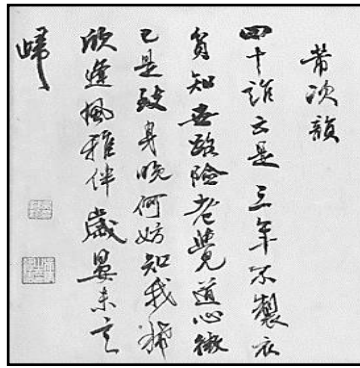 芾次韻
四十詎云是三年不製衣
貧知世路險老覺道心微
已是致身晚何妨知我稀
欣逢風雅伴歲晏未言
歸